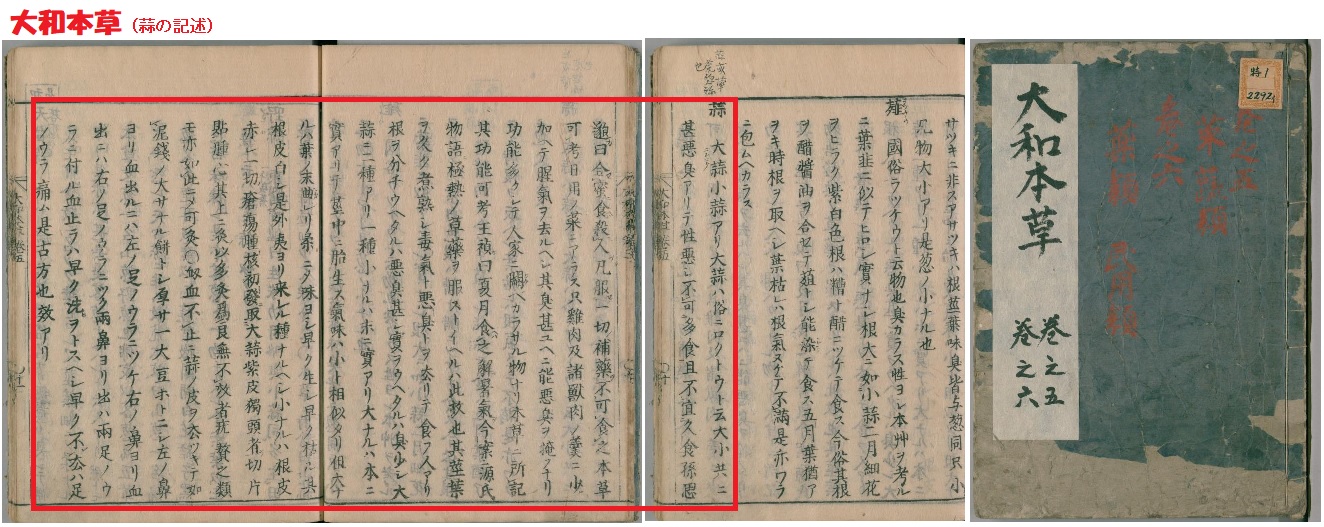 大和本草（蒜の記述）
サツキニ非スアサツキハ根莖葉味臭皆与葱同只小
凡物大小アリ是葱ノ小ナル也
薤 國俗ラツケウト云物也臭カラス性ヨシ本艸ヲ考ル
ニ葉韭ニ似テヒロシ實ナシ根大ニ如小蒜二月細花
ヲヒラク紫白色根ハ糟ト醋ニツケテ食ス今俗其根
ヲ醋醤油ヲ合セテ葅トシ能漆テ食ス五月葉猶ア
ヲキ時根ヲ取ヘシ葉枯レハ根氣スケテ不滿是亦ワラ
ニ包ムヘカラス
蒜 大蒜小蒜アリ大蒜ハ俗ニロクトウト云大小共ニ
甚悪臭アリテ性悪シ不可多食且不宜久食孫思
邈曰合蜜食殺人凡服一切補藥不可食之本草
可考日用ノ菜ニアラス只雞肉及諸獸肉ノ羹ニ少
加ヘテ腥氣ヲ去ルヘシ其臭甚ユヘニ能悪臭ヲ掩フナリ
功能多クシテ人家ニ闕ヘカラサル物ナリ本草ニ所記
其功能可考王禎曰夏月食之解暑氣今案ニ源氏
物語極熱ノ草藥ヲ服ストイヘルハ此故也其莖葉
ヲ久ク煮熟シ毒氣ト悪臭トヲ去リテ食フ人アリ
根ヲ分チウヘタルハ悪臭甚シ實ヲウヘタルハ臭少シ大
蒜ニ二種アリ一種小ナルハホニ實アリ大ナルハ本ニ
實アリテ莖中ニ胎生ス氣味ハ小ト相似タリ但大ナ
ルハ葉末曲レリ柔ニシテ味ヨシ早ク生シ早ク枯ル其
根皮白シ是外夷ヨリ來レル種ナルヘシ小ナルハ根皮
赤シ一切瘡瘍腫核初發取大蒜紫皮獨頭者切片
貼腫ニ其上ニ灸以多灸爲良無不效者疣贅之類
モ亦如此シテ可灸〇衂血不止ニ蒜ノ皮ヲ去ツキテ如
泥錢ノ大サナル餅トシ厚サ一大豆ホトニシ左ノ鼻
ヨリ血出ルニハ左ノ足ノウラニツケ右ノ鼻ヨリ血
出ニハ右ノ足ノウラニツク兩鼻ヨリ出ハ兩足ノウ
ラニ付ル血止ラハ早ク洗ヲトスヘシ早ク不去ハ足
ノウラ痛ム是古方也效アリ
特1
2292
大和本草
巻之五
巻之六